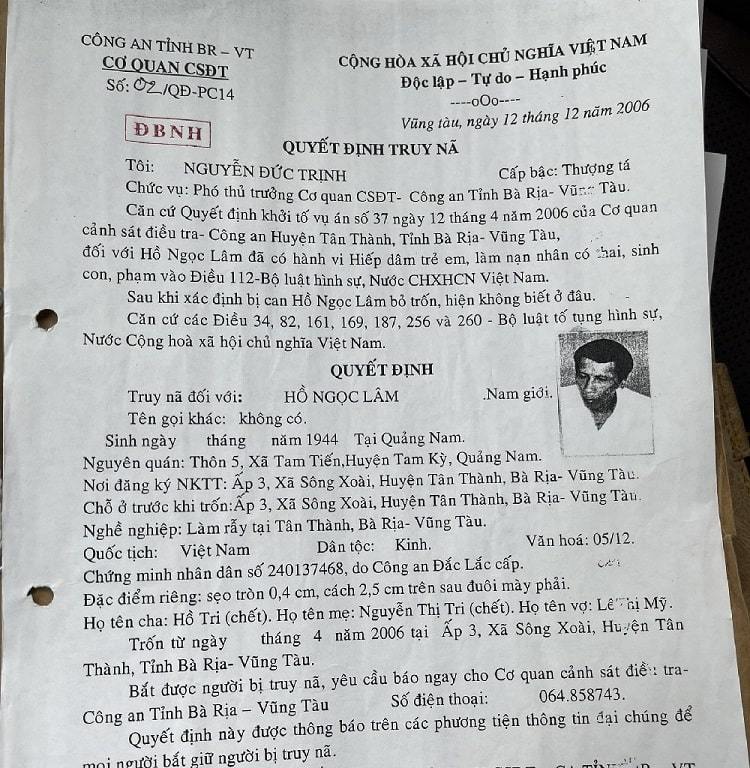 CÔNG AN TỈNH BR – VT
CƠ QUAN CSĐT
Số: 02/QĐ-PC14
CỘNG HÒA XÃ HỘI CHỦ NGHĨA VIỆT NAM
Độc lập – Tự do – Hạnh phúc
----oOo----
Vũng tàu, ngày 12 tháng 12 năm 2006
ĐBNH
QUYẾT ĐỊNH TRUY NÃ
Tôi: NGUYỄN ĐỨC TRỊNH Cấp bậc: Thượng tá
Chức vụ: Phó thủ trưởng Cơ quan CSĐT- Công an Tỉnh Bà Rịa- Vũng Tàu.
Căn cứ Quyết định khởi tố vụ án số 37 ngày 12 tháng 4 năm 2006 của Cơ quan
cảnh sát điều tra- Công an Huyện Tân Thành, Tỉnh Bà Rịa- Vũng Tàu,
đối với Hồ Ngọc Lâm đã có hành vi Hiếp dâm trẻ em, làm nạn nhân có thai, sinh
con, phạm vào Điều 112-Bộ luật hình sự, Nước CHXHCN Việt Nam.
Sau khi xác định bị can Hồ Ngọc Lâm bỏ trốn, hiện không biết ở đâu.
Căn cứ các Điều 34, 82, 161, 169, 187, 256 và 260 - Bộ luật tố tụng hình sự,
Nước Cộng hoà xã hội chủ nghĩa Việt Nam.
QUYẾT ĐỊNH
Truy nã đối với: HỒ NGỌC LÂM .Nam giới.
Tên gọi khác: không có.
Sinh ngày tháng năm 1944 Tại Quảng Nam.
Nguyên quán: Thôn 5, Xã Tam Tiến,Huyện Tam Kỳ, Quảng Nam.
Nơi đăng ký NKTT: Ấp 3, Xã Sông Xoài, Huyện Tân Thành, Bà Rịa- Vũng Tàu.
Chỗ ở trước khi trốn:Ấp 3, Xã Sông Xoài, Huyện Tân Thành, Bà Rịa- Vũng Tàu.
Nghề nghiệp: Làm rẫy tại Tân Thành, Bà Rịa- Vũng Tàu.
Quốc tịch: Việt Nam Dân tộc: Kinh. Văn hoá: 05/12.
Chứng minh nhân dân số 240137468, do Công an Đắc Lắc cấp.
Đặc điểm riêng: sẹo tròn 0,4 cm, cách 2,5 cm trên sau đuôi mày phải.
Họ tên cha: Hồ Tri (chết). Họ tên mẹ: Nguyễn Thị Tri (chết). Họ tên vợ: Lê Thị Mỹ.
Trốn từ ngày tháng 4 năm 2006 tại Ấp 3, Xã Sông Xoài, Huyện Tân
Thành, Tỉnh Bà Rịa- Vũng Tàu.
Bắt được người bị truy nã, yêu cầu báo ngay cho Cơ quan cảnh sát điều tra-
Công an Tỉnh Bà Rịa – Vũng Tàu Số điện thoại: 064.858743.
Quyết định này được thông báo trên các phương tiện thông tin đại chúng để
mọi người bắt giữ người bị truy nã.